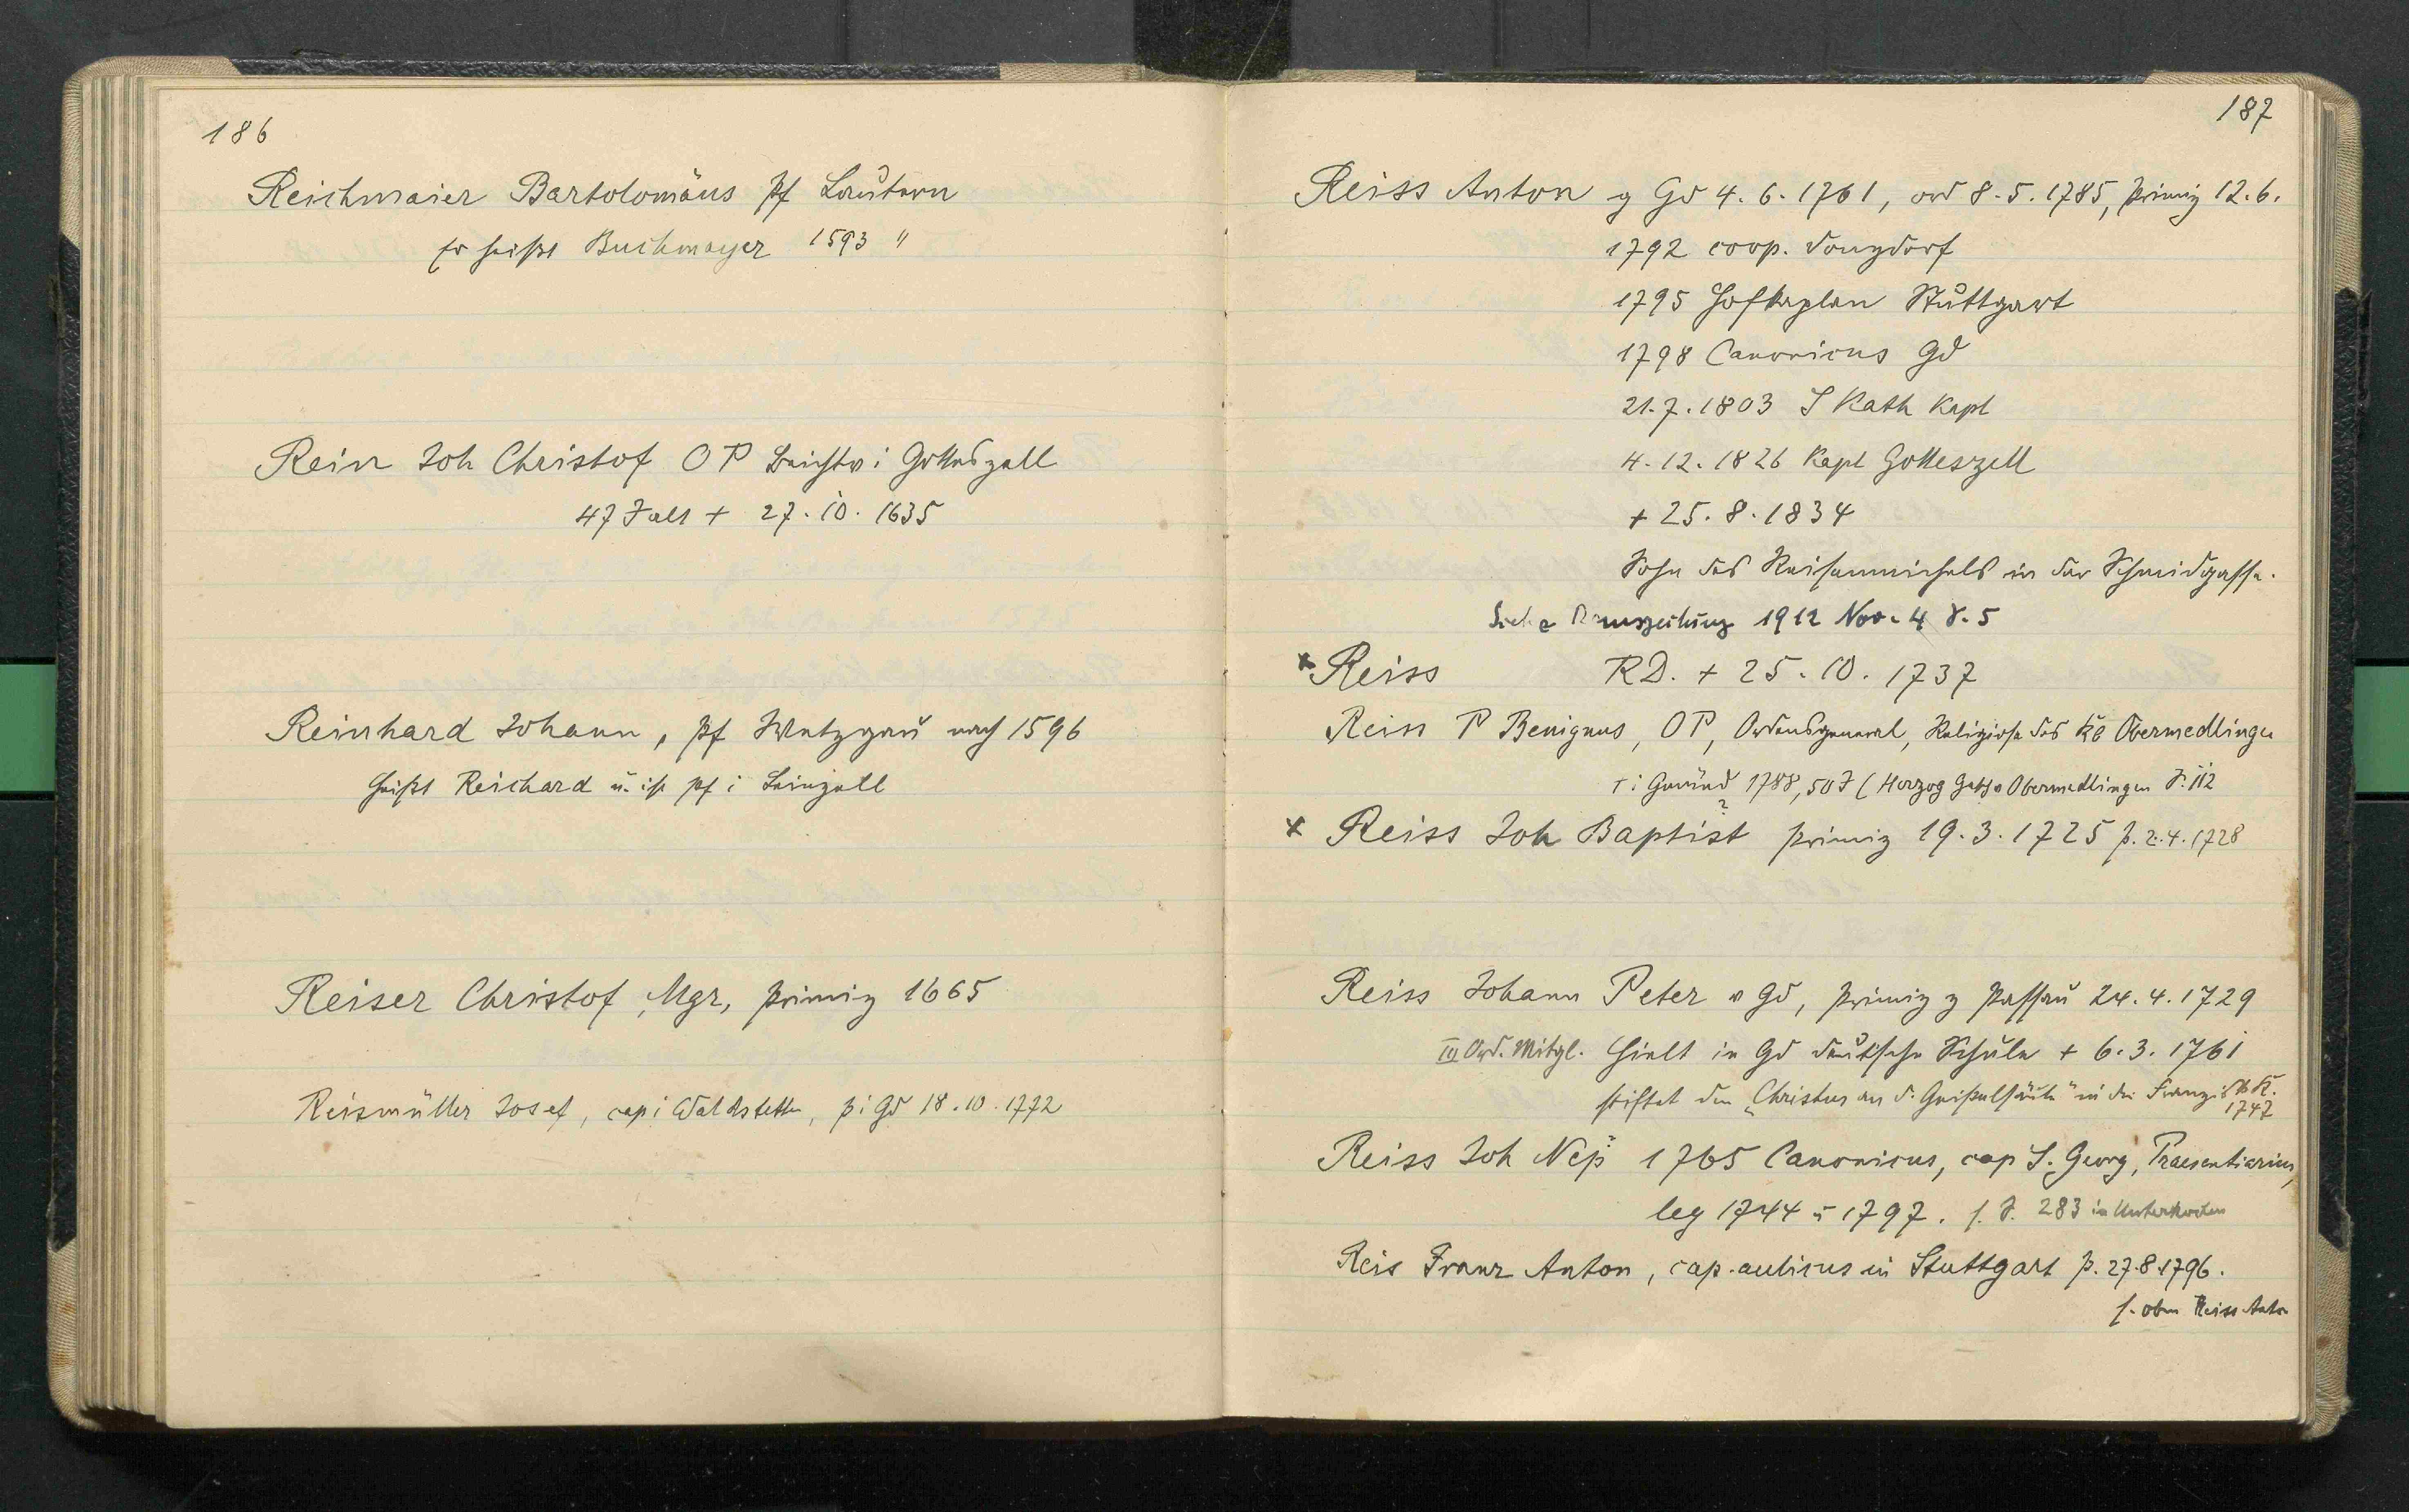 186
Reichmaier Bartolomäus Pf Lautern
er heißt Buchmayer 1593 "
Rein Joh Christof OP Beichtv i Gotteszell
47 J alt + 27. 10. 1635
Reinhard Johann, Pf Wetzgau nach 1596
heißt Reichard u. ist Pf i Leinzell
Reiser Christof, Mgr, Primiz 1665
Reismüller Josef, cap i Waldstetten, p i Gd 18. 10. 1772
187
Reiss Anton g Gd 4. 6. 1761, ord 8. 5. 1785, Primiz 12. 6.
1792 coop. Donzdorf
1795 Hofkaplan Stuttgart
1798 Canonicus Gd
21. 7. 1803 S Kath Kapl
4. 12. 1826 Kapl Gotteszell
+ 25. 8. 1834
Sohn des Reisenmichels in der Schmidgasse.
Siehe Remszeitung 1912 Nov. 4 S. 5
x Reiss RD. + 25. 10. 1737
Reiss P Benignus, OP, Ordensgeneral, Religiose des Kl Obermedlingen
+ i Gmünd 1788, 50 J (Herzog Gesch Obermedlingen S. 112
x Reiss Joh Baptist Primiz 19. 3. 1725 p. 2. 4. 1728
Reiss Johann Peter v Gd, Primiz z Passau 24. 4. 1729
III Ord. Mitgl. hielt in Gd deutsche Schule + 6. 3. 1761
stiftet den „Christus an d. Geißelsäule" in die Franzisk K.
1747
Reiss Joh Nep 1765 Canonicus, cap S. Georg, Praesentiarius,
leg 1744 u 1797. s. S. 283 in Unterkochen
Reis Franz Anton, cap. aulicus in Stuttgart p. 27.8.1796.
s. oben Reiss Anton